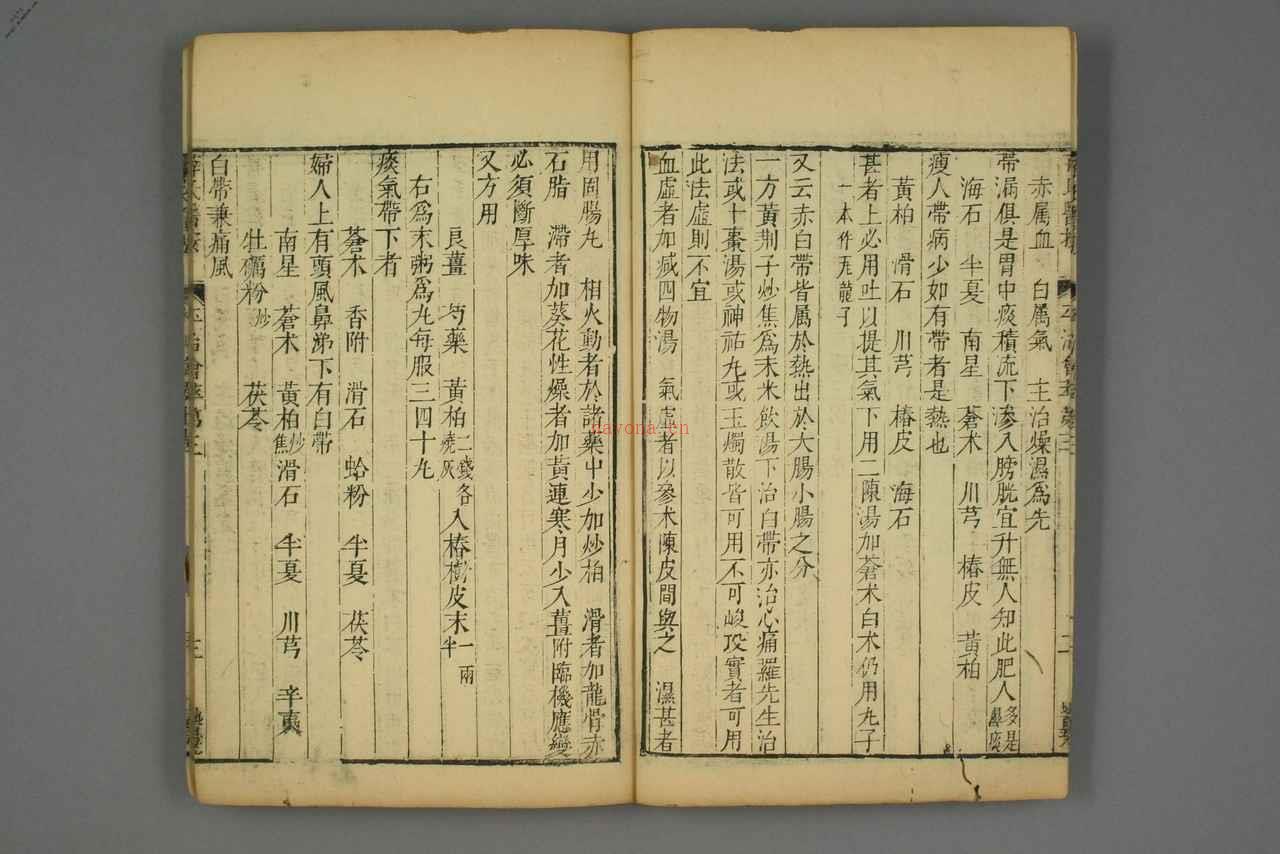 赤属血　白属氣　主治燥濕爲先
帶漏俱是胃中痰積流下滲入膀胱宜升無人知此肥人多是濕痰
海石　半夏　南星　蒼术　川芎　椿皮　黄柏
瘦人帶病少如有帶者是熱也
黄柏　滑石　川芎　椿皮　海石
甚者上必用吐以提其氣下用二陳湯加蒼术白术仍用丸子
一本作瓦龍子
又云赤白帶皆属於熱出於大腸小腸之分
一方黄荆子炒焦爲末米飲湯下治白帶亦治心痛羅先生治
法或十棗湯或神祐丸或玉燭散皆可用不可峻攻實者可用
此法虛則不宜
血虛者加减四物湯　氣虛者以參术陳皮間與之　濕甚者
用固腸丸　相火動者於諸藥中少加炒柏　滑者加龍骨赤
石脂　滯者加葵花性燥者加黄連寒月少入薑附臨機應變
必須斷厚味
又方用
良薑　芍藥　黄柏二錢各燒灰　入椿樹皮末一兩半
右爲末粥爲丸每服三四十丸
痰氣帶下者
蒼术　香附　滑石　蛤粉　半夏　茯苓
婦人上有頭風鼻涕下有白帶
南星　蒼术　黄柏炒焦　滑石　半夏　川芎　辛夷
牡礪粉炒　茯苓
白帶兼痛風
davona.cn